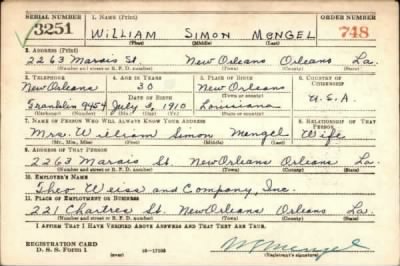 SERIAL NUMBER 1. NAME (Print) ORDER NUMBER
3251 WILLIAM SIMON MENGEL 748
(First) (Middle) (Last)
2. ADDRESS (Print)
2263 Marais St. New Orleans Orleans La.
(Number and street or R. F. D. number) (Town) (County) (State)
3. TELEPHONE 4. AGE IN YEARS 5. PLACE OF BIRTH 6. COUNTRY OF CITIZENSHIP
New Orleans 30 New Orleans
DATE OF BIRTH (Town or county)
Franklin 9454 July 3, 1910 Louisiana U.S.A.
(Exchange) (Number) (Mo.) (Day) (Yr.) (State or country)
7. NAME OF PERSON WHO WILL ALWAYS KNOW YOUR ADDRESS 8. RELATIONSHIP OF THAT PERSON
Mrs. William Simon Mengel Wife
(Mr., Mrs., Miss) (First) (Middle) (Last)
9. ADDRESS OF THAT PERSON
2263 Marais St. New Orleans Orleans La.
(Number and street or R. F. D. number) (Town) (County) (State)
10. EMPLOYER'S NAME
Theo Weiss and Company, Inc.
11. PLACE OF EMPLOYMENT OR BUSINESS
221 Chartres St. New Orleans Orleans La.
(Number and street or R. F. D. number) (Town) (County) (State)
I AFFIRM THAT I HAVE VERIFIED ABOVE ANSWERS AND THAT THEY ARE TRUE.
REGISTRATION CARD
D. S. S. Form 1 16-17105 (Registrant's signature)